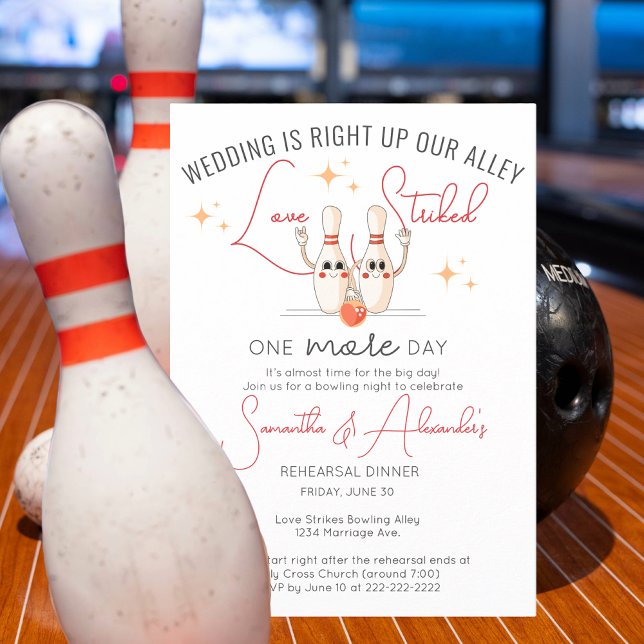 WEDDING IS RIGHT UP OUR ALLEY
Love Striked
ONE more DAY
It's almost time for the big day!
Join us for a bowling night to celebrate
Samantha & Alexander's
REHEARSAL DINNER
FRIDAY, JUNE 30
Love Strikes Bowling Alley
1234 Marriage Ave.
right after the rehearsal ends at
Cross Church (around 7:00)
by June 10 at 222-222-2222